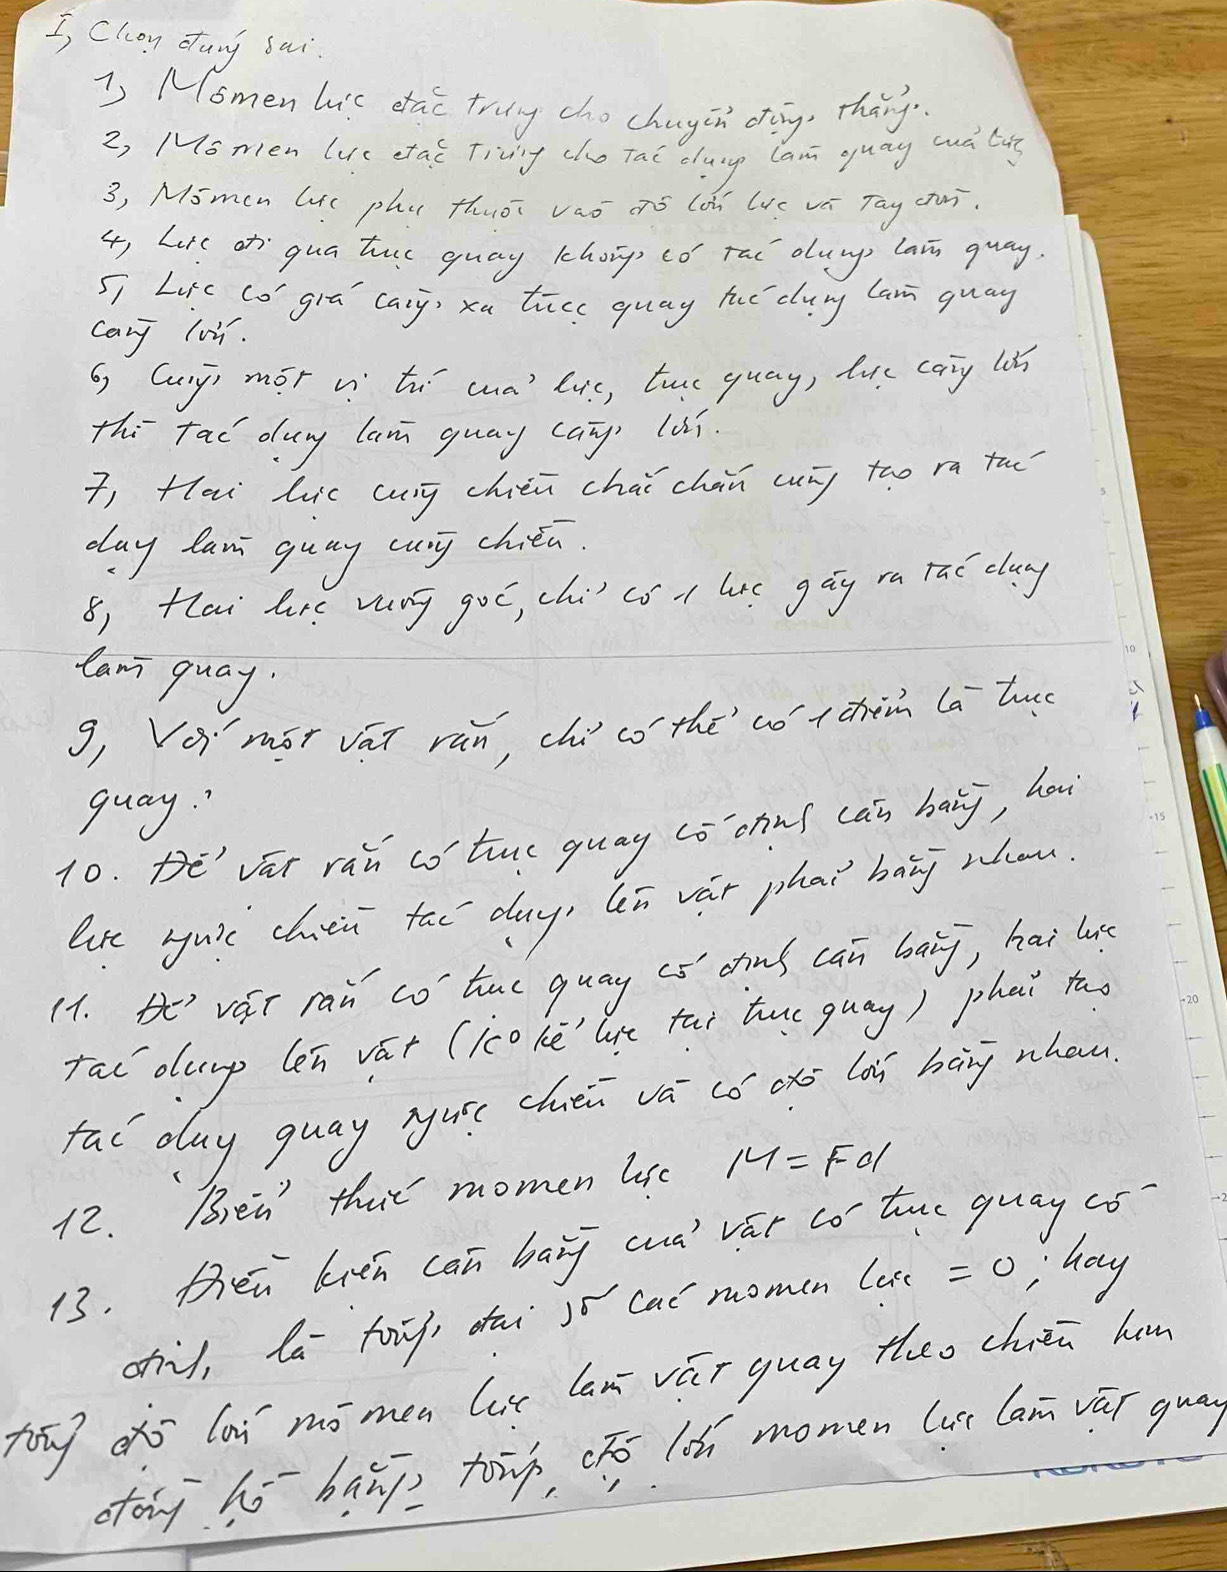 I, Chọn đúng sai.
1, Mômen lực đặc trưng cho chuyển động thẳng.
2, Mômen lực đặc trưng cho tác dụng làm quay của lực
3, Mômen lực phụ thuộc vào độ lớn lực và tay đòn.
4, Lực đi qua trục quay không có tác dụng làm quay.
5, Lực có giá càng xa trục quay tác dụng làm quay
càng lớn.
6, Cùng một vị trí của lực, trục quay, lực càng lớn
thì tác dụng làm quay càng lớn.
7, Hai lực cùng chiều chắc chắn cũng tạo ra tác
dụng làm quay cùng chiều.
8, Hai lực vuông góc, chỉ có 1 lực gây ra tác dụng
làm quay.
9, Với một vật rắn, chỉ có thể có 1 điểm là trục
quay.
10. Để vật rắn có trục quay cố định cân bằng, hai
lực ngược chiều tác dụng lên vật phải bằng nhau.
11. Để vật rắn có trục quay cố định cân bằng, hai lực
tác dụng lên vật (ko kể lực tại trục quay) phải tạo
tác dụng quay ngược chiều và có độ lớn bằng nhau.
12. Biểu thức momen lực M = Fd
13. Điều kiện cân bằng của vật có trục quay cố
định, là tổng đại số các momen lực = 0; hay
tổng độ lớn mômen lực làm vật quay theo chiều kim
đồng hồ bằng tổng độ lớn momen lực làm vật quay